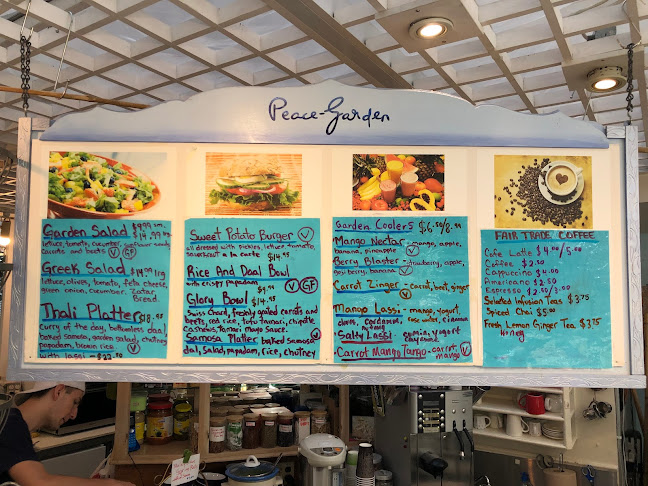 Peace-Garden
Garden Salad $8.99 sm.
$14.99 lrg
lettuce, tomato, cucumber, sunflower seeds,
carrots and beets V GF
Greek Salad $14.99 lrg
lettuce, olives, tomato, feta cheese,
green onion, cucumber. Zatar
Bread.
Thali Platter $18.95
curry of the day, bottomless daal,
baked samosa, garden salad, chutney
papadam, brown rice V
with lassi - $22.50
Sweet Potato Burger V
all dressed with pickles, lettuce, tomato,
sauerkraut a la carte $14.95
Rice And Daal Bowl
with crispy papadam V GF
$9.95
Glory Bowl $14.95
Swiss Chard, freshly grated carrots and
beets, red rice, tofu tamari, chipotle
cashews, tamari mayo sauce. V
Samosa Platter baked samosa
daal, salad, papadam, rice, chutney
Garden Coolers $6.50/8.00
Mango Nectar - mango, apple,
banana, pineapple V
Berry Blaster - strawberry, apple,
goji berry, banana V
Carrot Zinger - carrot, beet, ginger
V
Mango Lassi - mango, yogurt,
cloves, cardamom, rose water, cinnamon
honey
Salty Lassi - cumin, yogurt
cayenne
Carrot Mango Tango - carrot,
mango V
FAIR TRADE COFFEE
Cafe Latte $4.00/5.00
Coffee $2.50
Cappuccino $4.00
Americano $2.50
Espresso $2.50/3.00
Selected Infusion Teas $3.75
Spiced Chai $5.00
Fresh Lemon Ginger Tea $3.75
Honey